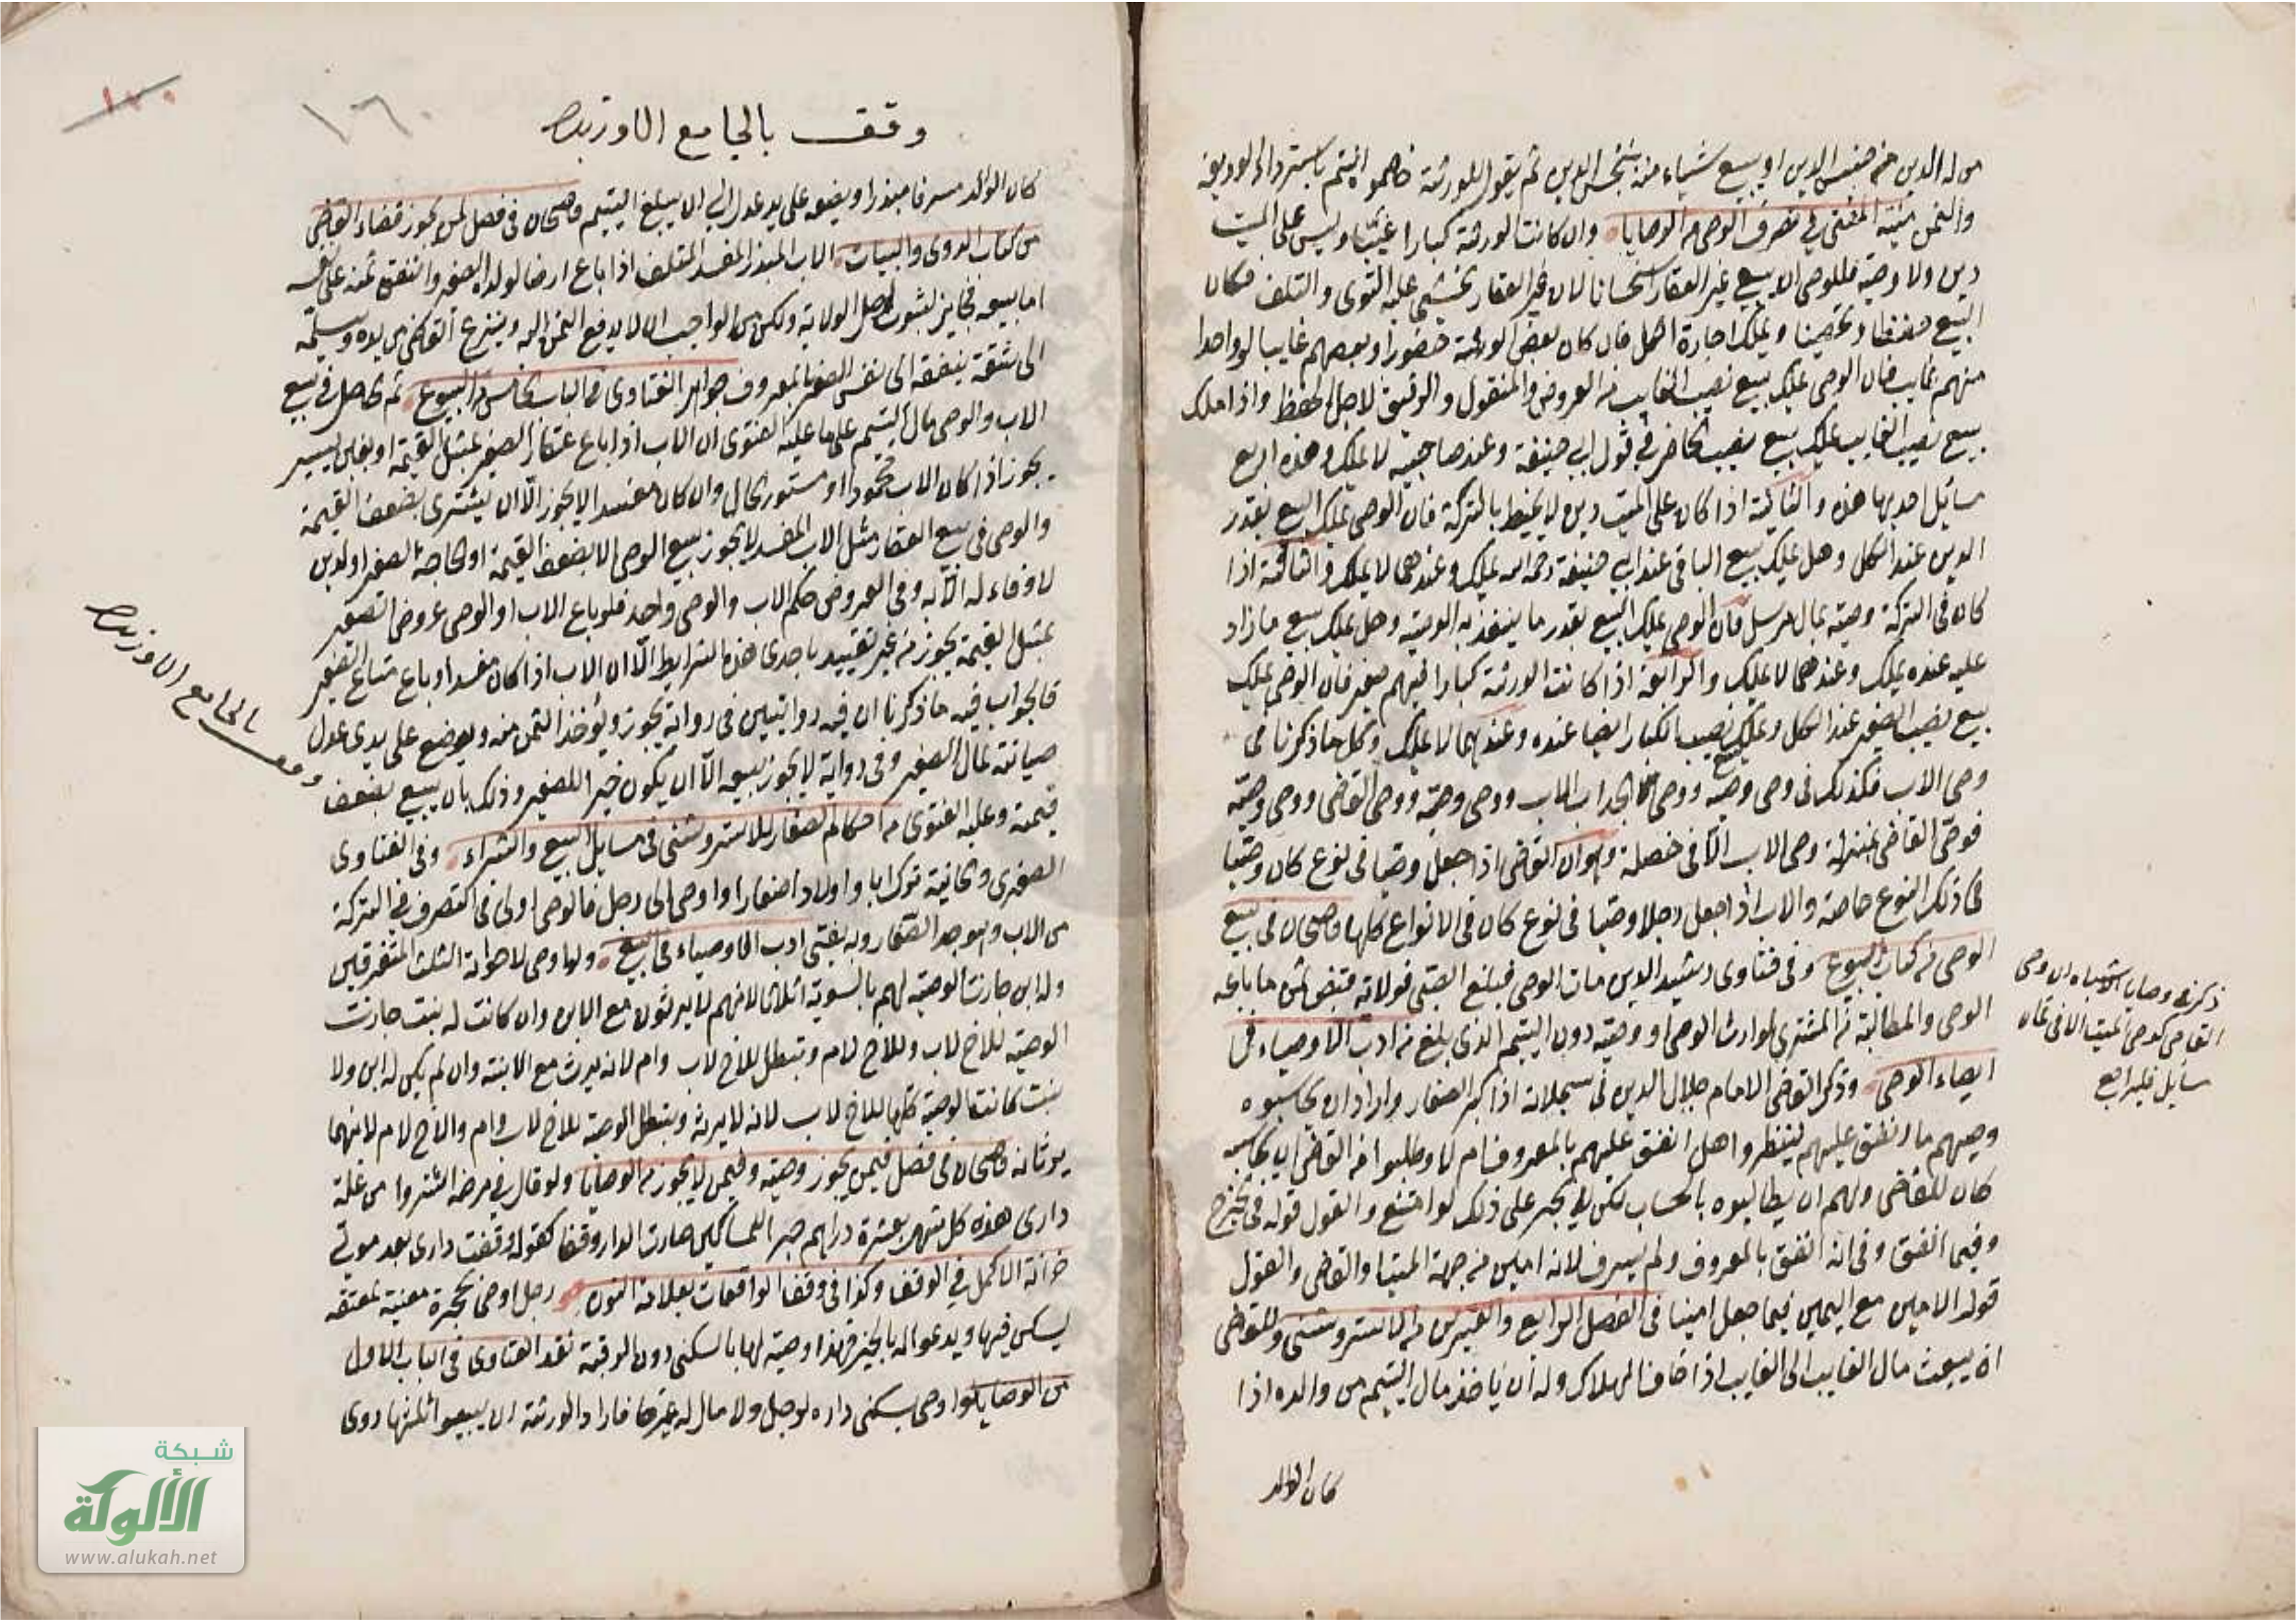 من له الدين من جنس الدين او يبيع شياء منه بجنس الدين ثم يقول للورثة خاصموا انتم باسترداد الوديعة
والثمن منية المفتي في تصرف الوصي من الوصايا وان كانت الورثة كبارا غيبا وليس على الميت
دين ولا وصية فللوصي ان يبيع غير العقار استحسانا لان غير العقار يخشى عليه التوى والتلف فكان
البيع حفظا وتحصينا ويملك اجارة الكل فان كان بعض الورثة حضورا وبعضهم غايبا او واحدا
منهم غايب فان الوصي يملك بيع نصيب الغايب من العروض والمنقول والرقيق لاجل الحفظ واذا ملك
بيع نصيب الغايب يملك بيع نصيب الحاضر في قول ابي حنيفة وعند صاحبيه لا يملك وهذه اربع
مسائل احديها هذه والثانية اذا كان على الميت دين لا يحيط بالتركة فان الوصي يملك البيع بقدر
الدين عند الكل وهل يملك بيع الباقي عند ابي حنيفة رحمه الله يملك وعندهما لا يملك والثالثة اذا
كان في التركة وصية بمال مرسل فان الوصي يملك البيع بقدر ما ينفذ به الوصية وهل يملك بيع ما زاد
عليه عنده يملك وعندهما لا يملك والرابعة اذا كانت الورثة كبارا فيهم صغير فان الوصي يملك
بيع نصيب الصغير عند الكل ويملك بيع نصيب الكبار ايضا عنده وعندهما لا يملك وكل ما ذكرنا في
وصي الاب فكذلك في وصي وصيه ووصي الجد اب الاب ووصي وصيه ووصي القاضي ووصي وصيه
فوصي القاضي بمنزلة وصي الاب الا في خصلة وهو ان القاضي اذا جعل وصيا في نوع كان وصيا
في ذلك النوع خاصة والاب اذا جعل رجلا وصيا في نوع كان في الانواع كلها قاضيخان في بيع
الوصي من كتاب البيوع وفي فتاوى رشيد الدين مات الوصي فبلغ الصبي فولاية قبض ثمن ما باعه
الوصي والمطالبة من المشتري لوارث الوصي او وصيه دون اليتيم الذي بلغ من ادب الاوصياء في
ايصاء الوصي وذكر القاضي الامام جلال الدين في سجلاته اذا كبر الصغار وارادوا ان يحاسبوه
وصيهم ما انفق عليهم لينظروا هل انفق عليهم بالمعروف ام لا وطلبوا من القاضي ان يحاسبه
كان للقاضي ولهم ان يطالبوه بالحساب لكن لا يجبر على ذلك لو امتنع والقول قوله في الخرج
وفيما انفق وفي انه انفق بالمعروف ولم يسرف لانه امين من جهة الميت او القاضي والقول
قول الامين مع اليمين فيما جعل امينا في الفصل الرابع والعشرين من الاستروشني وللقاضي
ان يبعث مال الغايب الى الغايب اذا خاف الهلاك وله ان ياخذ مال اليتيم من والده اذا
كان الوالد
ذكر في وصايا الاشباه ان وصي
القاضي كوصي الميت الا في ثمان
مسايل فليراجع
١٦٠
وقف بالجامع الاوزبك
كان الوالد مسرفا مبذرا ويضعه على يد عدل الى ان يبلغ اليتيم قاضيخان في فصل لمن يجوز قضاء القاضي
من كتاب الدعوى والبينات الاب المبذر المفسد المتلف اذا باع ارضا لولده الصغير وانفق ثمنه على نفسه
اما بيعه فجايز لثبوت اصل الولاية ولكن من الواجب ان لا يدفع الثمن اليه وينزع القاضي من يده ويسلمه
الى ثقة ينفقه الى نفس الصغير بالمعروف جواهر الفتاوى في الباب الخامس من البيوع ثم الحاصل في بيع
الاب والوصي مال اليتيم على ما عليه الفتوى ان الاب اذا باع عقار الصغير بمثل القيمة او بغبن يسير
يجوز اذا كان الاب محمودا او مستور الحال وان كان مفسدا لا يجوز الا ان يشترى بضعف القيمة
والوصي في بيع العقار مثل الاب المفسد لا يجوز بيع الوصي الا بضعف القيمة او لحاجة الصغير او لدين
لا وفاء له الا به وفي العروض حكم الاب والوصي واحد فلو باع الاب او الوصي عروض الصغير
بمثل القيمة يجوز من غير تقييد باحدى هذه الشرايط الا ان الاب اذا كان مفسدا وباع متاع الصغير
فالجواب فيه ما ذكرنا ان فيه روايتين في رواية يجوز ويؤخذ الثمن منه ويوضع على يدي عدل
صيانة لمال الصغير وفي رواية لا يجوز بيعه الا ان يكون خيرا للصغير وذلك بان يبيع بضعف
قيمته وعليه الفتوى من احكام الصغار للاستروشني في مسايل البيع والشراء وفي الفتاوى
الصغرى والخانية ترك ابا واولادا صغارا واوصى الى رجل فالوصي اولى في التصرف في التركة
من الاب وهو جد الصغار وبه يفتى ادب الاوصياء في البيع ولو اوصى لاخوانه الثلث المتفرقين
وله ابن جازت الوصية لهم بالسوية اثلاثا لانهم لا يرثون مع الابن وان كانت له بنت جازت
الوصية للاخ لاب وللاخ لام وتبطل للاخ لاب وام لانه يرث مع الابنة وان لم يكن له ابن ولا
بنت كانت الوصية كلها للاخ لاب لانه لا يرث وتبطل الوصية للاخ لاب وام والاخ لام لانهما
يرثانه قاضيخان في فصل فيمن يجوز وصيته وفيمن لا يجوز من الوصايا ولو قال في مرضه اشتروا من غلة
داري هذه كل شهر بعشرة دراهم خبزا للمساكين صارت الدار وقفا كقوله وقفت داري بعد موتي
خزانة الاكمل في الوقف وكذا في وقف الواقعات بعلامة النون رجل اوصى بحجرة معينة لمعتقه
يسكن فيها ويدعو له بالخير فهذا وصية لها بالسكنى دون الرقبة نقد الفتاوى في الباب الاول
من الوصايا ولو اوصى بسكنى داره لرجل ولا مال له غيرها فاراد الورثة ان يبيعوا ثلثها روى
وقف بالجامع الاوزبك
شبكة
الألوكة
www.alukah.net